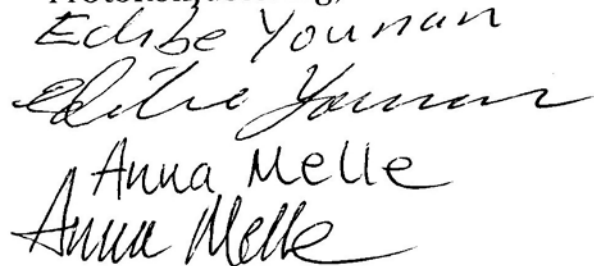 Edibe Younan
Edibe Younan
Anna Melle
Anna Melle